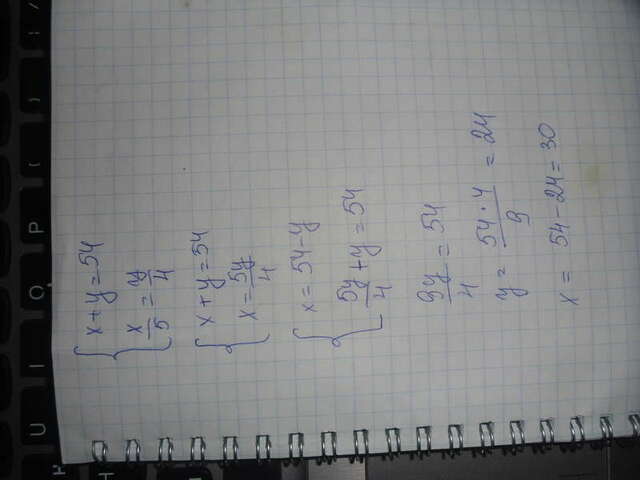 { x + y = 54
x/5 = y/4
{ x + y = 54
x = 5y/4
{ x = 54 - y
5y/4 + y = 54
9y/4 = 54
y = 54 · 4/9 = 24
x = 54 - 24 = 30
U I O P